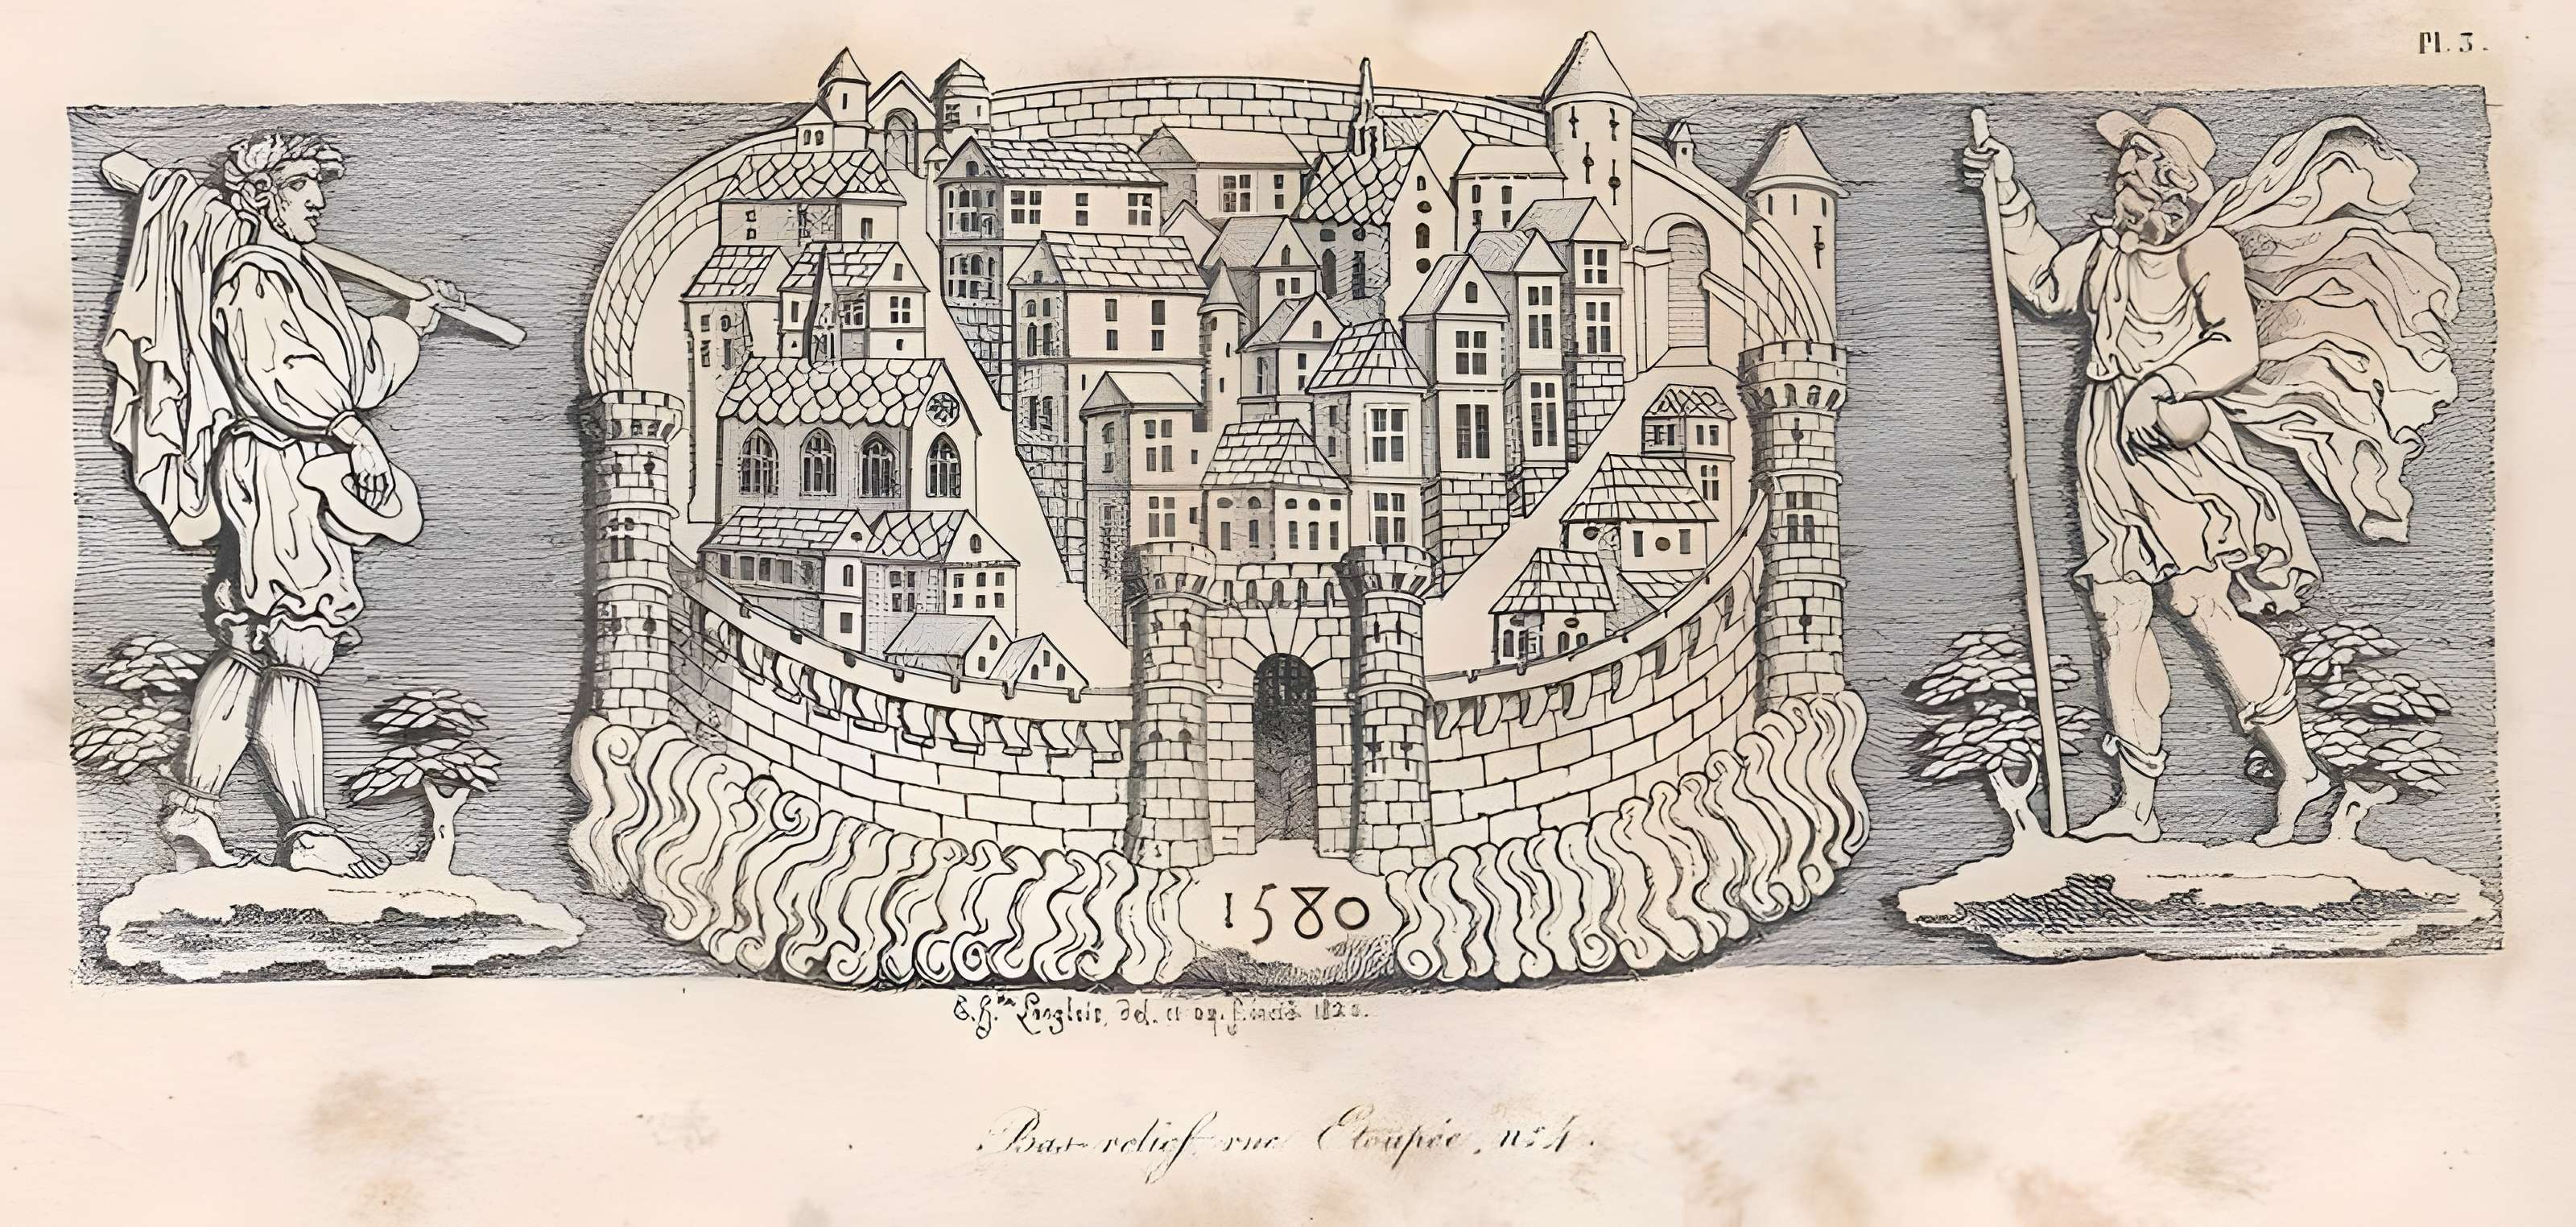 Pl. 3.
1580
E. H. Langlois, del. et aq. f. 1820.
Bas-relief, rue Etoupée, n° 4.